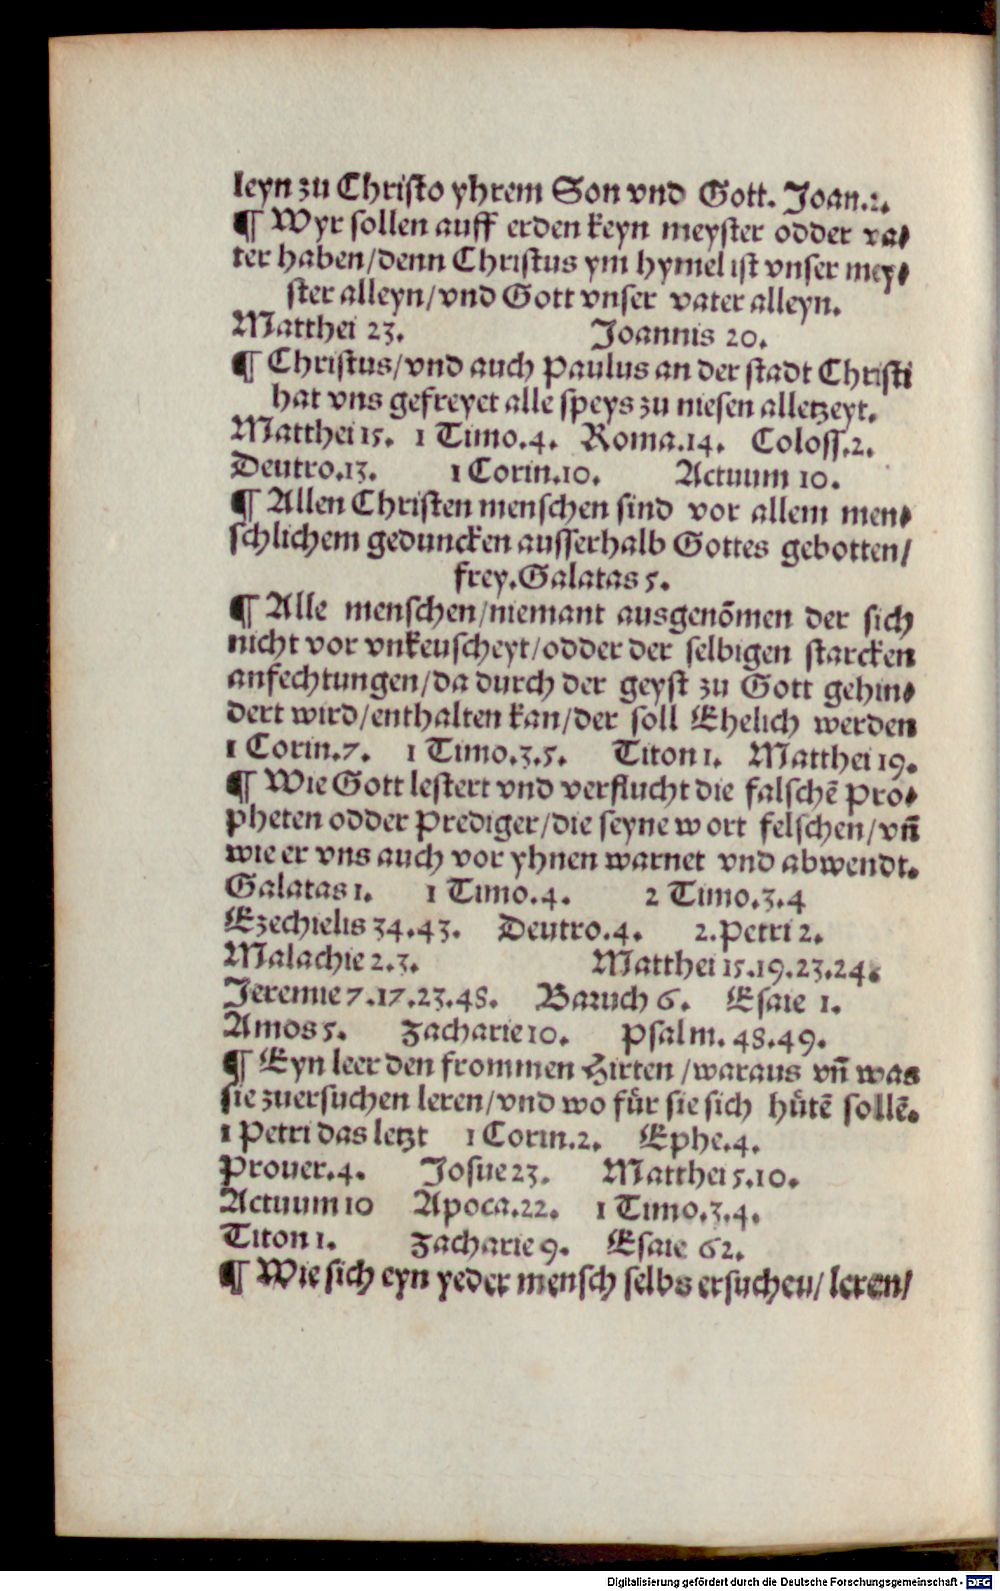 leyn zu Christo yhrem Son vnd Gott. Joan.2.
¶ Wyr sollen auff erden keyn meyster odder va⸗
ter haben/denn Christus ym hymel ist vnser mey⸗
ster alleyn/vnd Gott vnser vater alleyn.
Matthei 23. Joannis 20.
¶ Christus/vnd auch Paulus an der stadt Christi
hat vns gefreyet alle speys zu niesen alletzeyt.
Matthei 15. 1 Timo.4. Roma.14. Coloss.2.
Deutro.13. 1 Corin.10. Actuum 10.
¶ Allen Christen menschen sind vor allem men⸗
schlichem geduncken ausserhalb Gottes gebotten/
frey.Galatas 5.
¶ Alle menschen/niemant ausgenõmen der sich
nicht vor vnkeuscheyt/odder der selbigen starcken
anfechtungen/da durch der geyst zu Gott gehin⸗
dert wird/enthalten kan/der soll Ehelich werden
1 Corin.7. 1 Timo.3.5. Titon 1. Matthei 19.
¶ Wie Gott lestert vnd verflucht die falschẽ Pro⸗
pheten odder Prediger/die seyne wort felschen/vñ
wie er vns auch vor yhnen warnet vnd abwendt.
Galatas 1. 1 Timo.4. 2 Timo.3.4
Ezechielis 34.43. Deutro.4. 2.Petri 2.
Malachie 2.3. Matthei 15.19.23.24.
Jeremie 7.17.23.48. Baruch 6. Esaie 1.
Amos 5. Zacharie 10. Psalm. 48.49.
¶ Eyn leer den frommen Hirten /waraus vñ was
sie zuersuchen leren/vnd wo fuͤr sie sich huͤtẽ sollẽ.
1 Petri das letzt 1 Corin.2. Ephe.4.
Prouer.4. Josue 23. Matthei 5.10.
Actuum 10 Apoca.22. 1 Timo.3.4.
Titon 1. Zacharie 9. Esaie 62.
¶ Wie sich eyn yeder mensch selbs ersuchen/ leren/
Digitalisierung gefördert durch die Deutsche Forschungsgemeinschaft - DFG